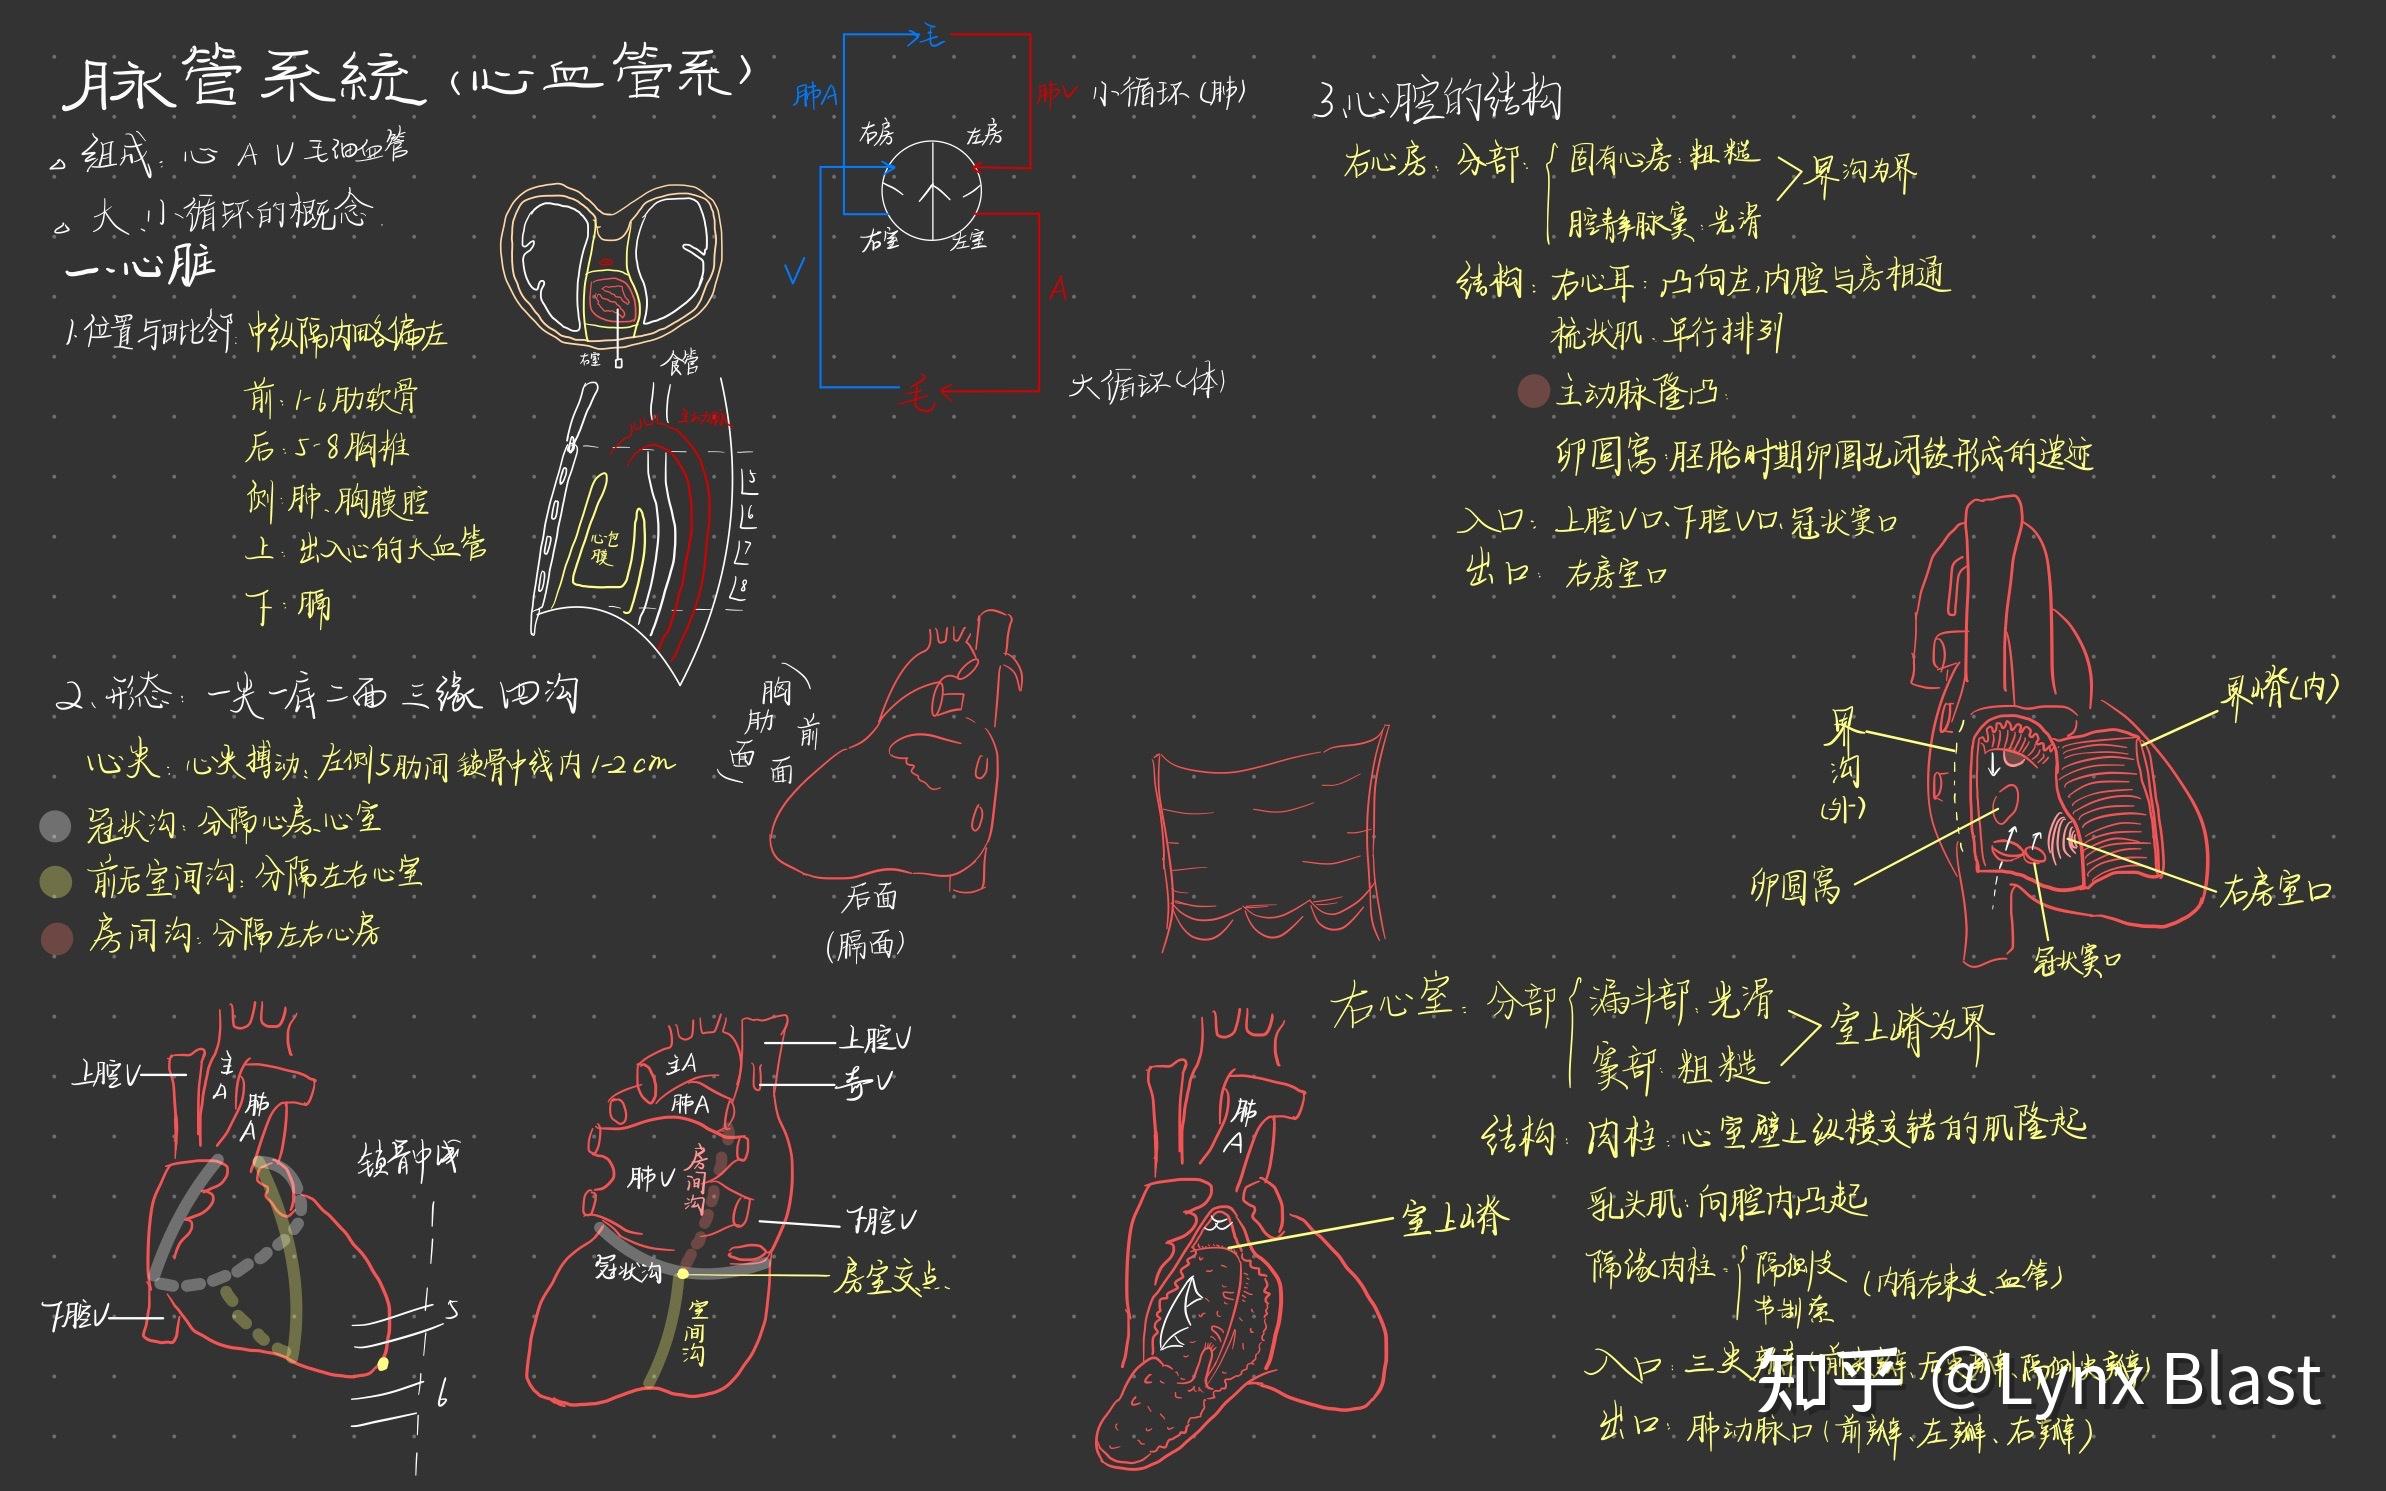 脉管系統（心血管系）
▵ 组成：心 A V 毛细血管
▵ 大、小循环的概念.
一.心脏
1.位置与毗邻：中纵隔内略偏左
前：1-6肋软骨
后：5-8胸椎
侧：肺、胸膜腔
上：出入心的大血管
下：膈
右室
食管
主动脉
心包膜
L5
L6
L7
L8
毛
肺A
肺V
小循环（肺）
右房
左房
右室
左室
V
A
毛
大循环（体）
2、形态：一尖一底二面 三缘 四沟
心尖：心尖搏动：左侧5肋间锁骨中线内1-2cm
冠状沟：分隔心房、心室
前后室间沟：分隔左右心室
房间沟：分隔左右心房
（胸肋面）
前面
后面
（膈面）
上腔V
主A
肺A
下腔V
锁骨中线
5
6
主A
肺A
肺V
房间沟
冠状沟
室间沟
上腔V
奇V
下腔V
房室交点.
3.心腔的结构
右心房：分部：
固有心房：粗糙
腔静脉窦：光滑
界沟为界
结构：右心耳：凸向左,内腔与房相通
梳状肌：平行排列
主动脉隆凸：
卵圆窝：胚胎时期卵圆孔闭锁形成的遗迹
入口：上腔V口、下腔V口、冠状窦口
出口：右房室口
界沟（外）
界嵴（内）
卵圆窝
右房室口
冠状窦口
右心室：分部
漏斗部：光滑
窦部：粗糙
室上嵴为界
结构：肉柱：心室壁上纵横交错的肌隆起
乳头肌：向腔内凸起
隔缘肉柱：
隔侧支
节制索
（内有右束支、血管）
入口：三尖瓣（前尖瓣、后尖瓣、隔侧尖瓣）
出口：肺动脉口（前瓣、左瓣、右瓣）
肺A
室上嵴
知乎 @Lynx Blast